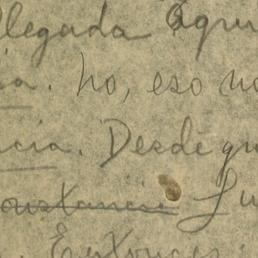 llegada Aqu
. No, eso no
cia. Desde qu
Constancia Lu
. Entonces